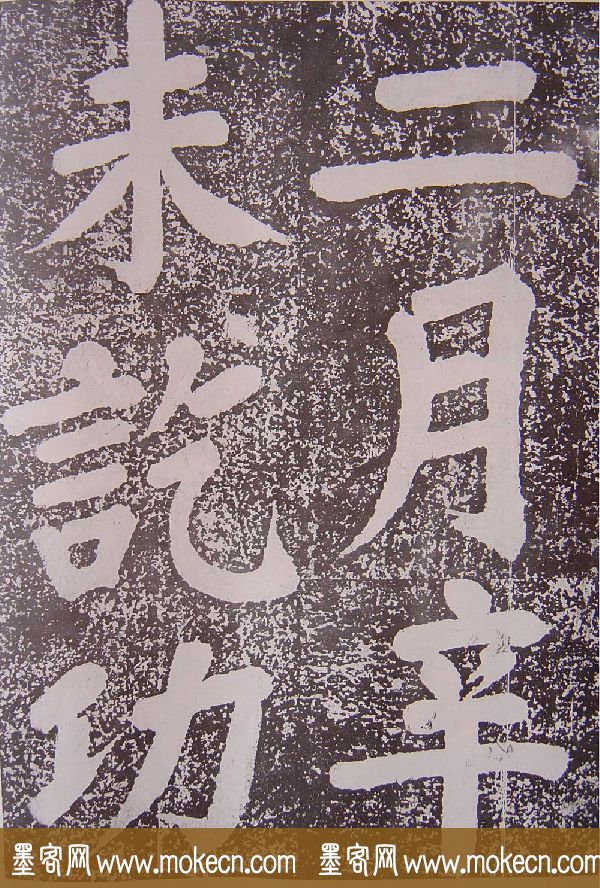 二月辛
未訖功
墨客网 www.mokecn.com 墨客网 www.mokecn.com